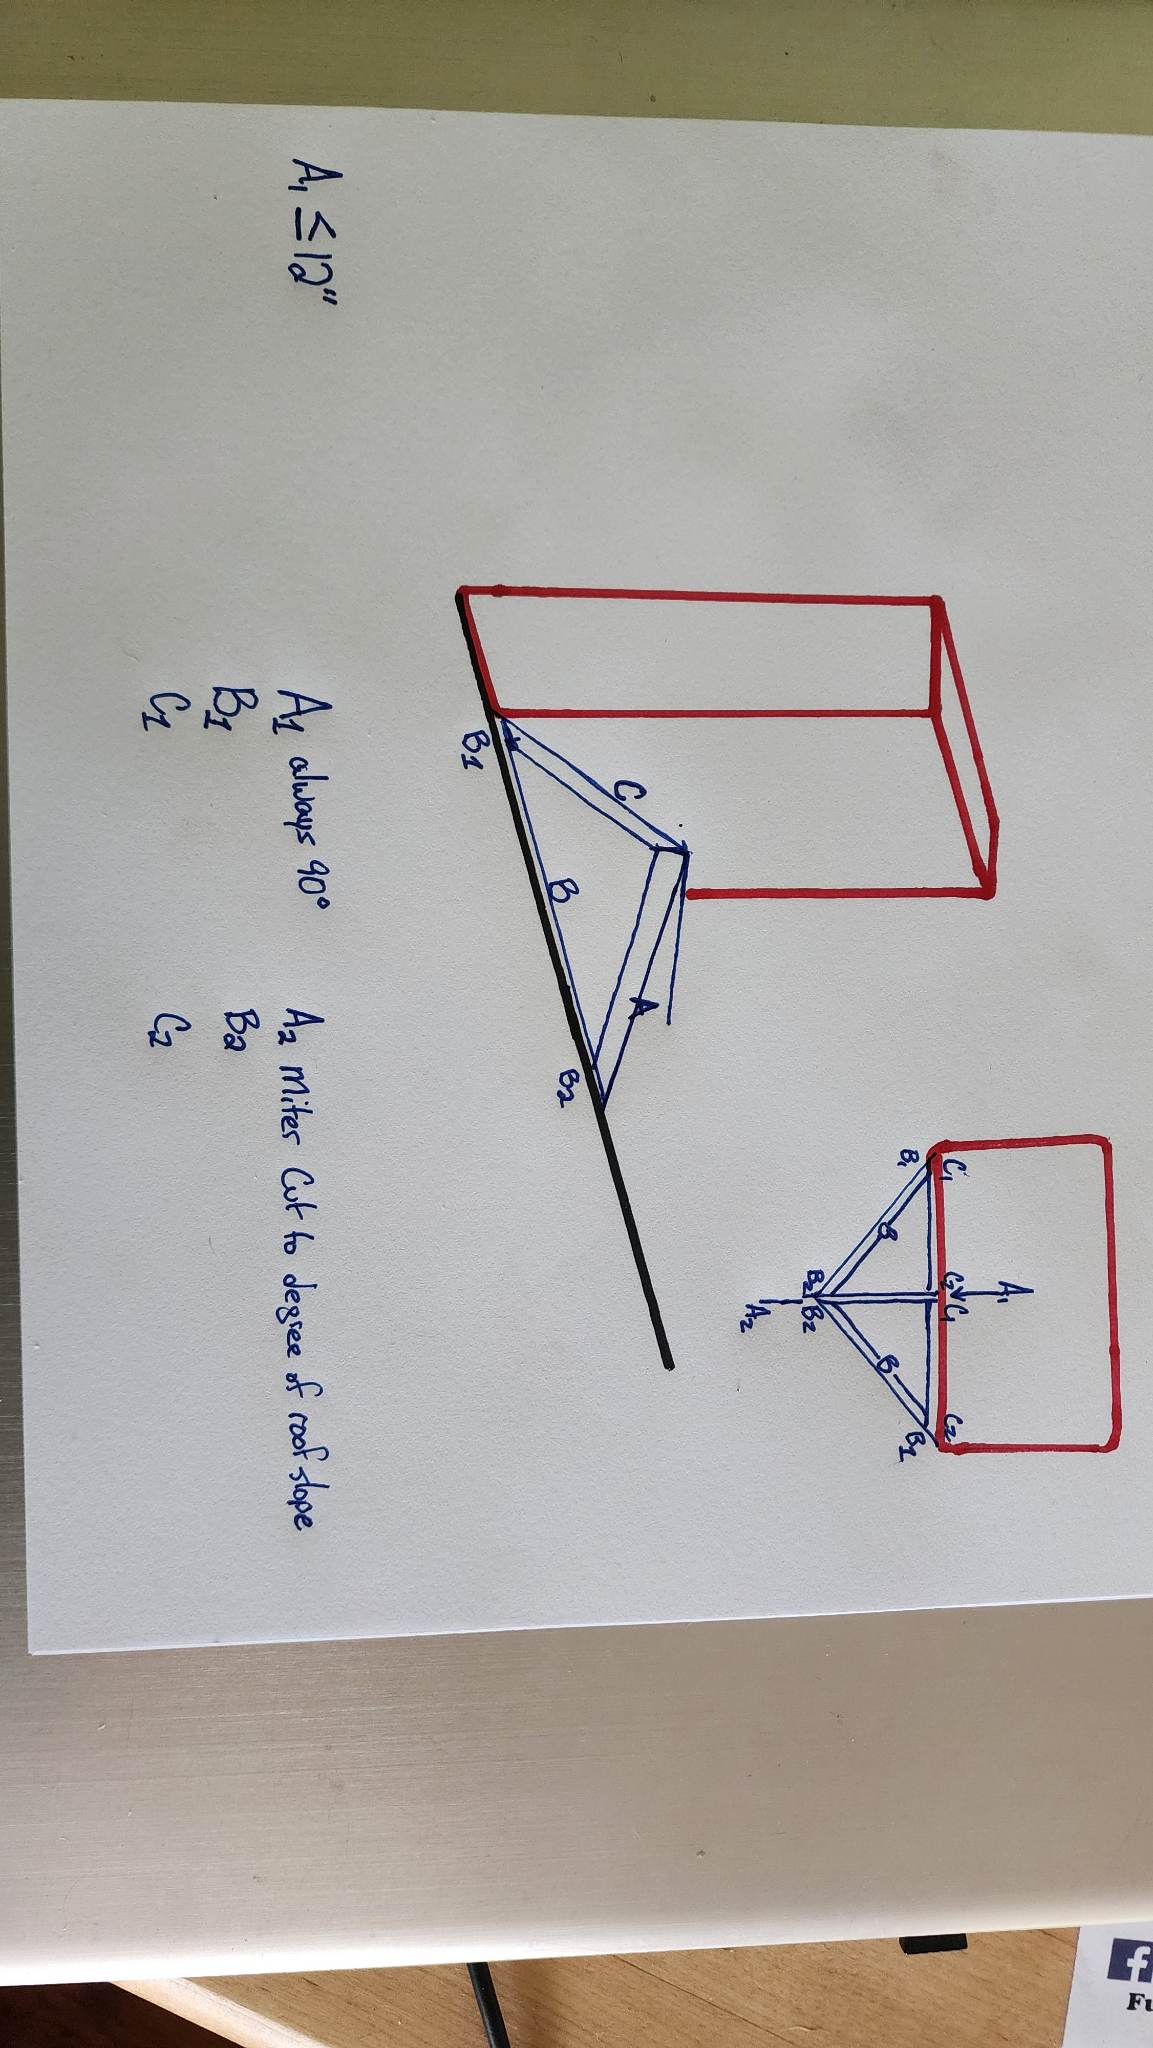 A₁
C₁
C₂ C₁
C₂
B₁
B
B
B1
B2 B2
A2
C
A
B
B2
B1
A₁ ≤ 12"
A1 always 90°
A2 Miter Cut to degree of roof slope
B1
B2
C1
C2
f
Fu